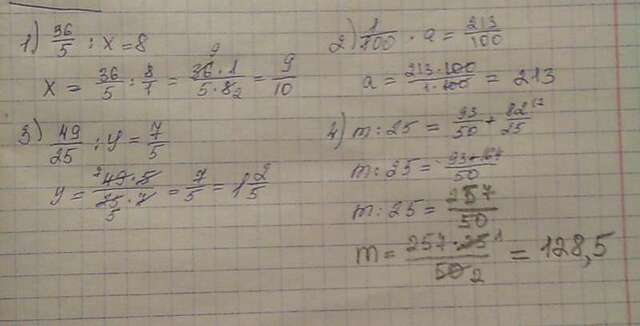 1) 36/5 : x = 8
x = 36/5 : 8/1 = 36·1/5·8 2 = 9/10
2) 1/100 · a = 213/100
a = 213·100/1·100 = 213
3) 49/25 : y = 7/5
y = 49·5/25·7 = 7/5 = 1 2/5
4) m : 25 = 93/50 + 82/25
m : 25 = 93+164/50
m : 25 = 257/50
m = 257·25 1/50 2 = 128,5